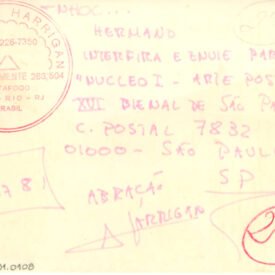 HARRIGAN
226-7350
VENTE 263/504
BOTAFOGO
RIO - RJ
BRASIL
HERMANO
INTERFIRA E ENVIE PAR
"NUCLEO I - ARTE POS
XVI BIENAL DE SÃO P
C. POSTAL 7832
01000 - SÃO PAUL
SP
ABRAÇÃ
HARRIGAN